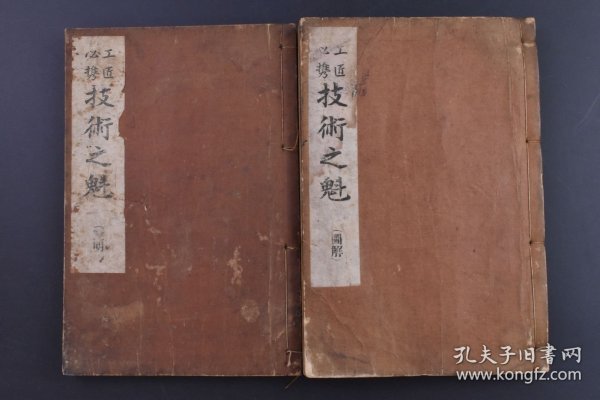 工匠
必携
技術之魁
明
工匠
必携
技術之魁
圖解
孔夫子旧書网
www.kongfz.com